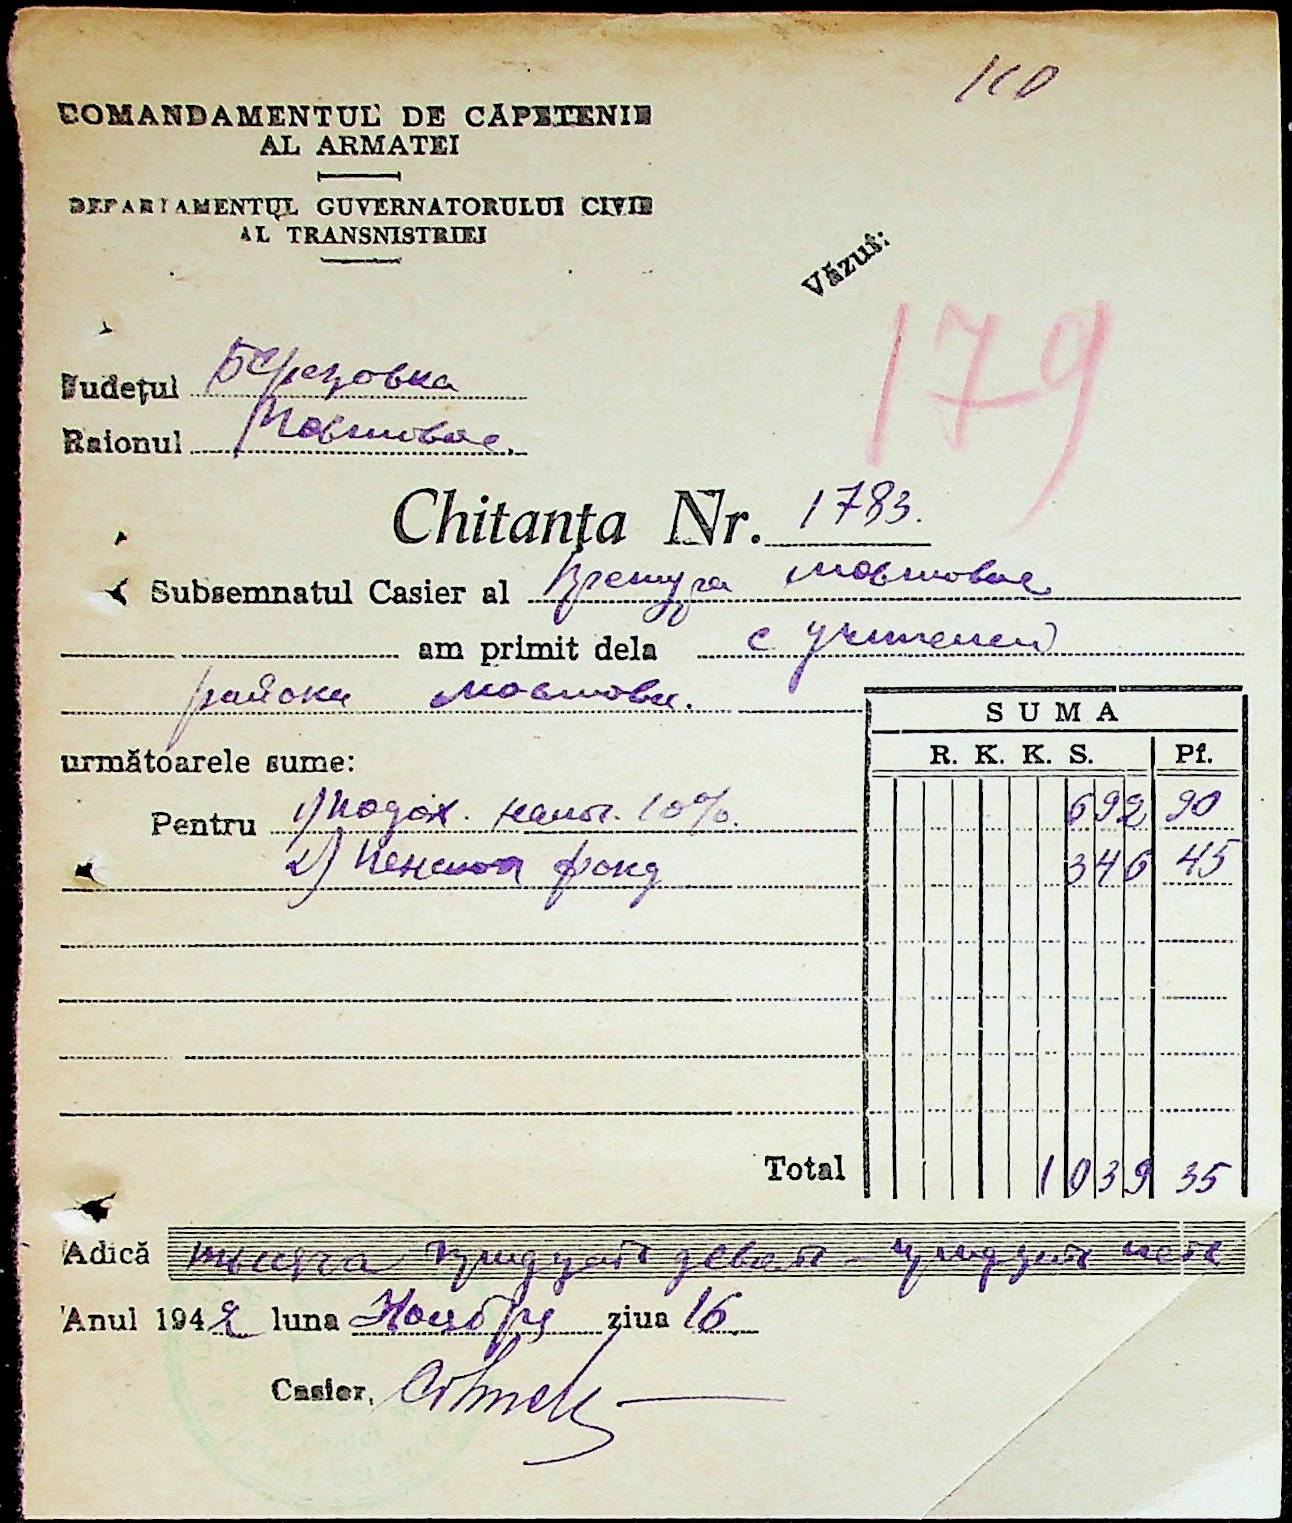 COMANDAMENTUL DE CĂPETENIE
AL ARMATEI
DEPARTAMENTUL GUVERNATORULUI CIVIL
AL TRANSNISTRIEI
Văzut:
179
Județul Березовка
Raionul Мостовое.
Chitanța Nr. 1783.
Subsemnatul Casier al Мостовое
am primit dela с учителей
района Мостовое.
SUMA
R. K. K. S. Pf.
următoarele sume:
Pentru 1) Подох. налог. 10% 692 90
2) Пенсион фонд 346 45
Total 1039 35
Adică тысяча тридцать девять – тридцать пять
Anul 1942 luna Ноября ziua 16
Casier,